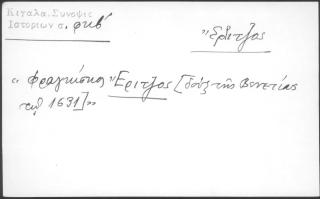 Κιγαλα. Συνοψις
Ιστοριων σ. φκβ'
Ἔριτζος
« Φραγκίσκος Ἔριτζος [δοὺξ τῆς Βενετίας
τῷ 1631]»